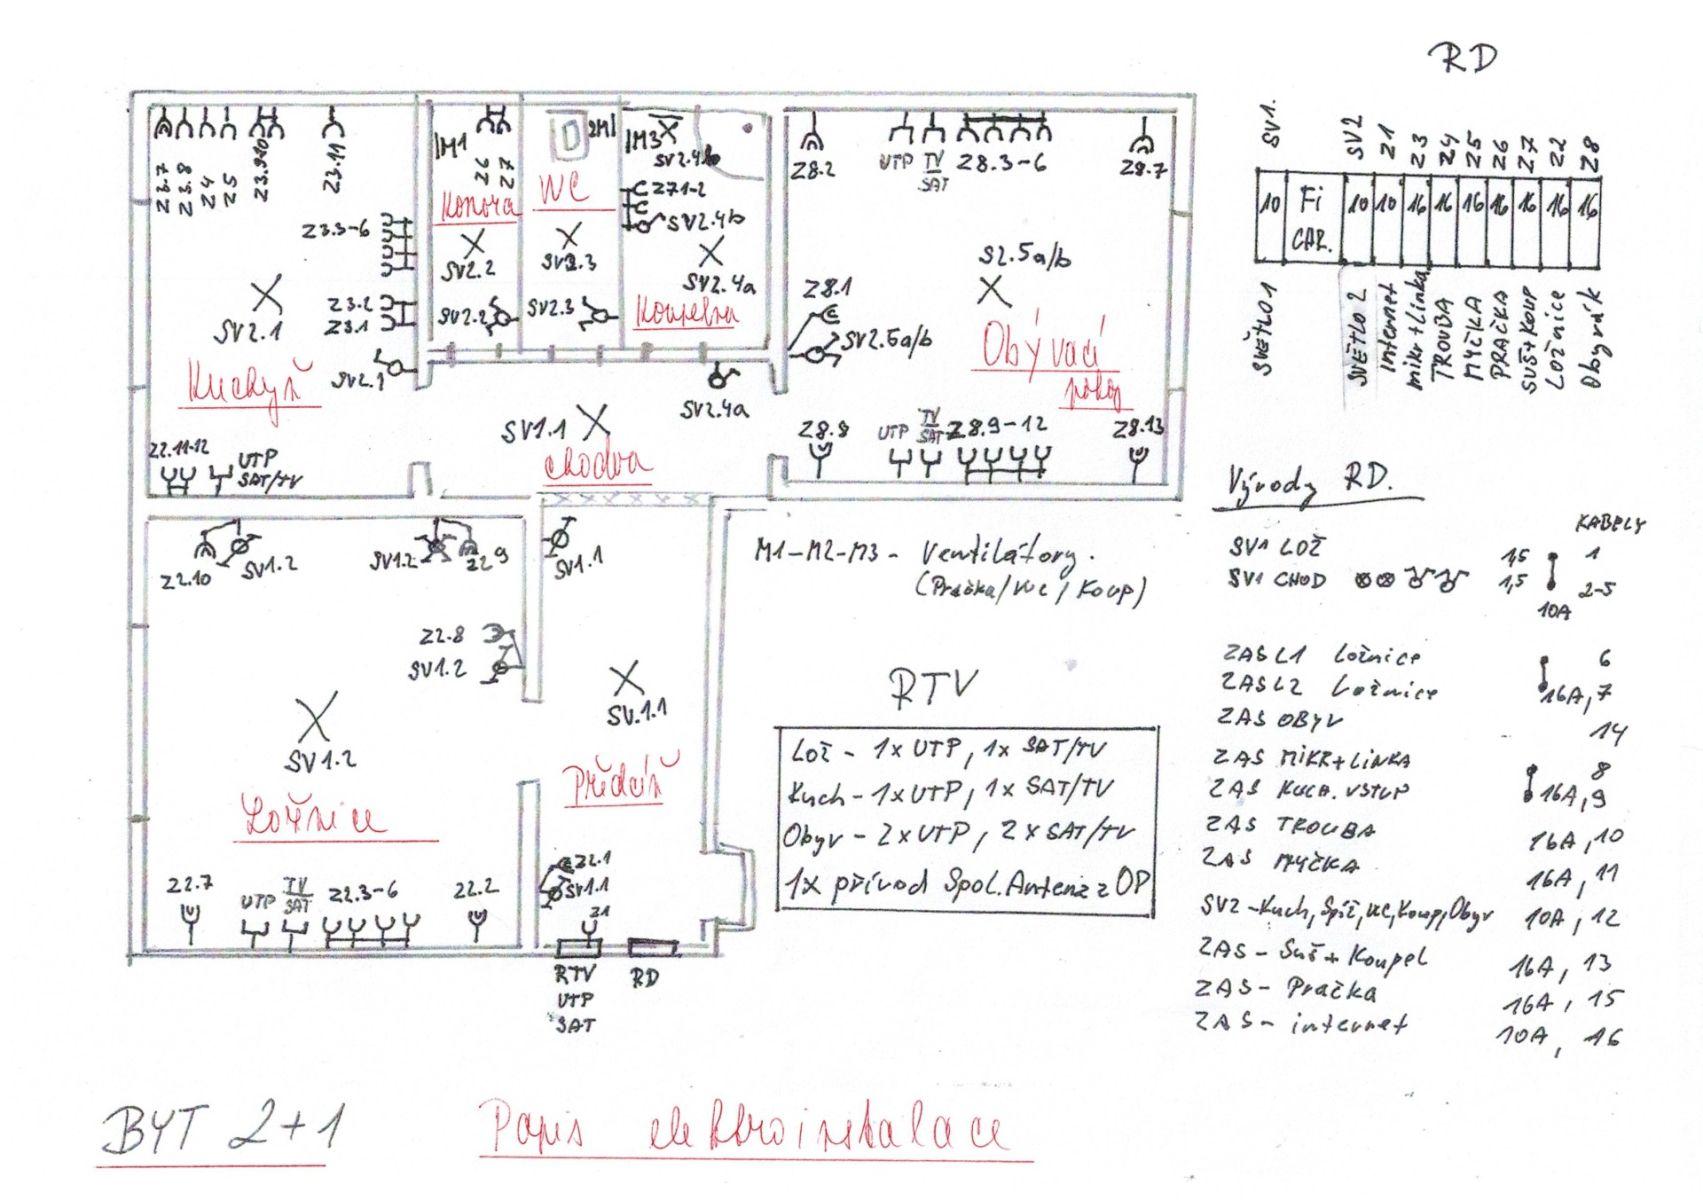 RD
SV1.
SV2
Z1
Z3
Z4
Z5
Z6
Z7
Z2
Z8
10 Fi CHR. 10 10 16 16 16 16 16 16 16
SVĚTLO 1
SVĚTLO 2
Internet
mikr+Linka
TROUBA
MYČKA
PRAČKA
SUŠ+KOUP
Ložnice
Obyvák
Z3.7
Z3.8
Z4
Z5
Z3.9 10
Z3.11
Z3.3-6
Z3.2
Z3.1
SV2.1
SV2.1
Kuchyň
Z2.11-12
UTP
SAT/TV
M1
Z6
Z7
Komora
SV2.2
SV2.2
2M
WC
SV2.3
SV2.3
M3
SV2.4b
Z7.1-2
SV2.4b
SV2.4a
Koupelna
SV2.4a
SV1.1
chodba
Z8.2
UTP
TV
SAT
Z8.3-6
Z8.7
S2.5a/b
Z8.1
SV2.5a/b
Obývací
pokoj
Z8.8
UTP
TV
SAT
Z8.9-12
Z8.13
Z2.10
SV1.2
SV1.2
Z2.9
SV1.1
Z2.8
SV1.2
SV1.2
SV.1.1
Ložnice
Předsíň
Z2.7
UTP
TV
SAT
Z2.3-6
Z2.2
Z2.1
SV1.1
Z1
RTV
UTP
SAT
RD
M1-M2-M3- Ventilátory.
(Pračka/WC/Koup)
RTV
Lož - 1x UTP, 1x SAT/TV
Kuch - 1x UTP, 1x SAT/TV
Obyv - 2x UTP, 2x SAT/TV
1x přívod Spol. Antena z OP
Vývody RD.
KABELY
SV1 LOŽ 1,5 1
SV1 CHOD 1,5 2-5
10A
ZAS L1 Ložnice 6
ZAS L2 Ložnice 16A, 7
ZAS OBYV 14
ZAS MIKR+LINKA 8
ZAS KUCH. VSTUP 16A, 9
ZAS TROUBA 16A, 10
ZAS MYČKA 16A, 11
SV2-Kuch, Spíž, WC, Koup, Obyv 10A, 12
ZAS - Suš + Koupel 16A, 13
ZAS - Pračka 16A, 15
ZAS - internet 10A, 16
BYT 2+1
Popis elektroinstalace